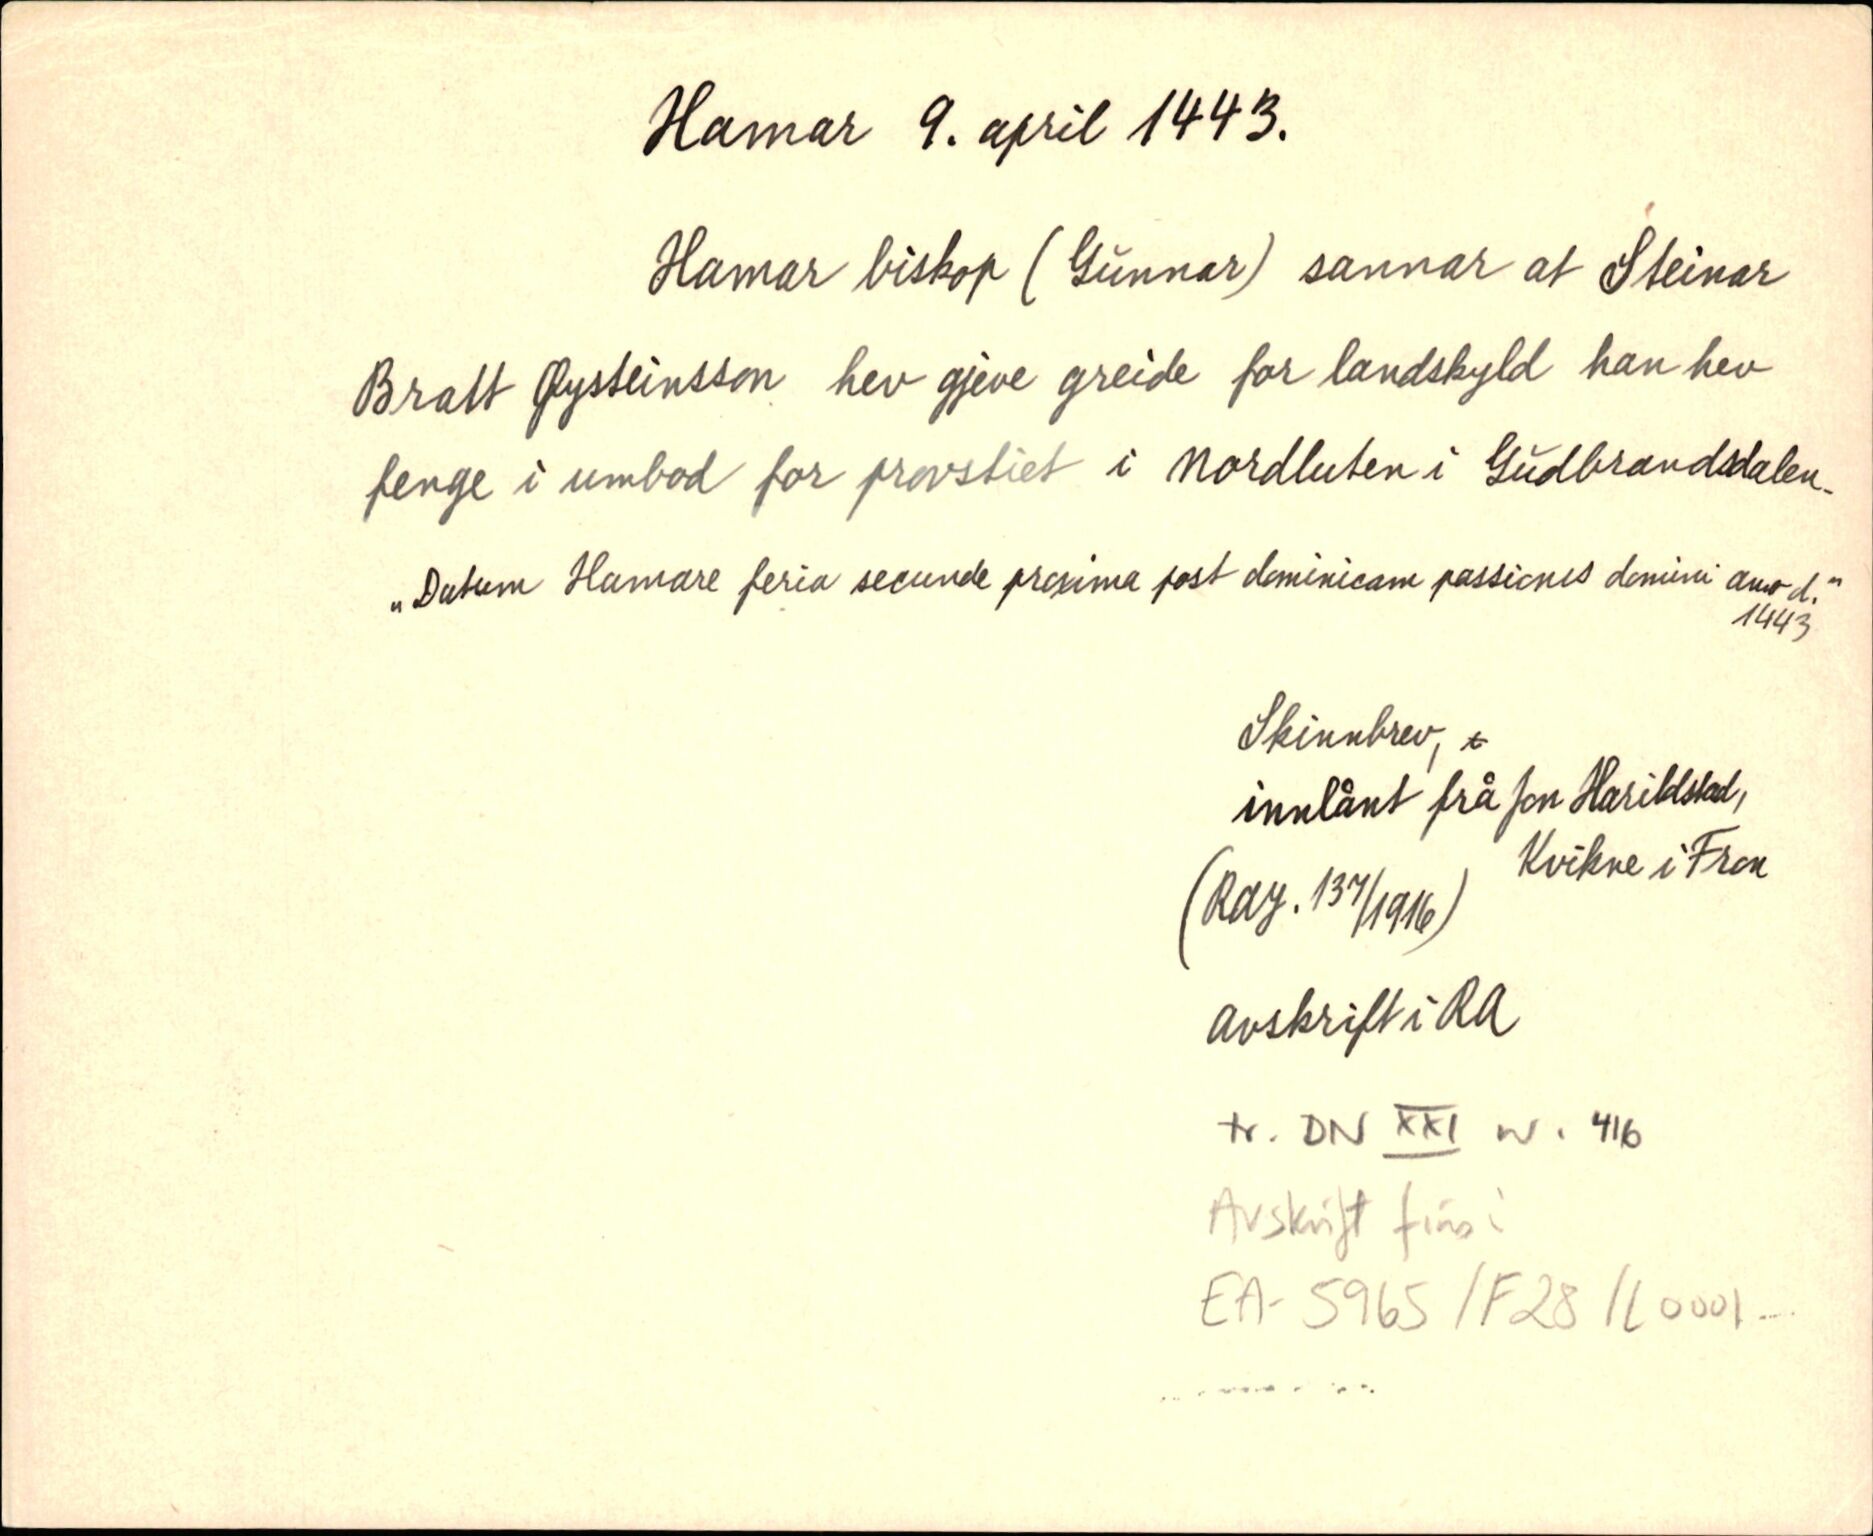 Hamar 9. april 1443.
Hamar biskop (Gŭnnar) sannar at Steinar
Bratt Øysteinsson hev gjeve greide for landskyld han hev
fenge i umbod for provstiet i Nordluten i Gŭdbrandsdalen.
„Datum Hamare feria secunde proxima post dominicam passionis domini anno d."
1443
Skinnbrev,
innlånt frå Jon Harildstad,
Kvikne i Fron
(Ray. 137/1916)
avskrift i RA
tr. DN XXI nr. 416
Avskrift fins i
EA- 5965 /F28 /L 0001